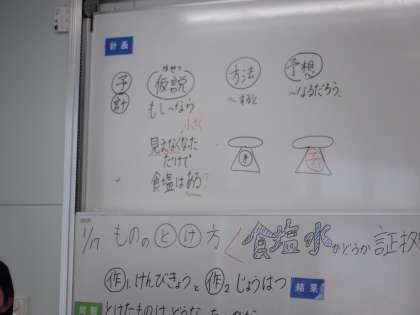 計画
予 仮説 方法 予想
計 もし~なら ~すると ~なるだろう。
小さく
見えなくなった
だけで
食塩はある?
1/17 もののとけ方 く食塩水かどうか証拠
作1 けんびきょうと 作2 じょうはつ 結果
とけたものは